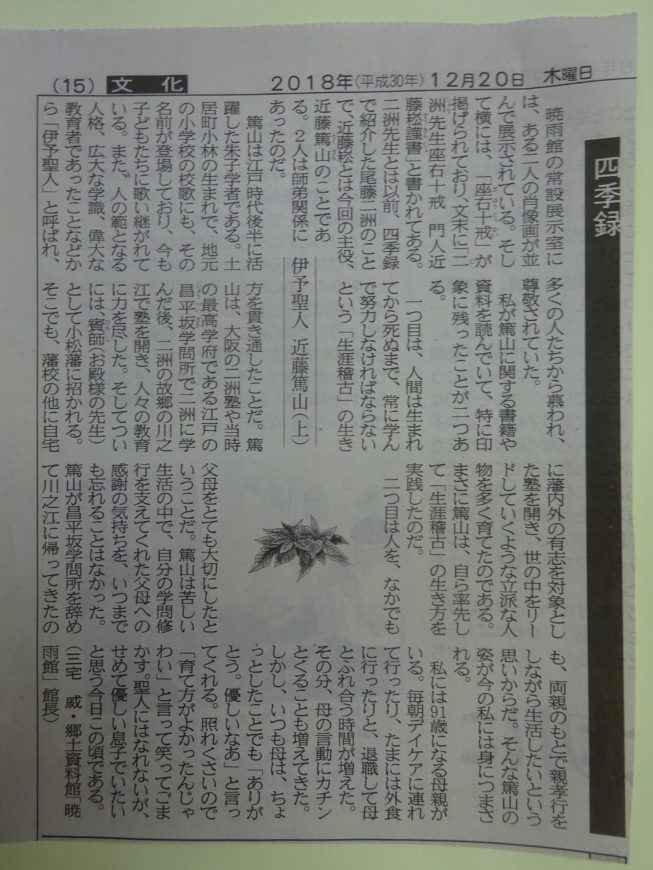 (15) 文化 2018年(平成30年)12月20日 木曜日
四季録
伊予聖人 近藤篤山(上)
暁雨館の常設展示室に
は、ある二人の肖像画が並
んで展示されている。そし
て横には、「座右十戒」が
掲げられており、文末に「二
洲先生座右十戒 門人近
藤崧謹書」と書かれてある。
二洲先生とは以前、四季録
で紹介した尾藤二洲のこと
で、近藤崧とは今回の主役、
近藤篤山のことであ
る。2人は師弟関係に
あったのだ。
篤山は江戸時代後半に活
躍した朱子学者である。土
居町小林の生まれで、地元
の小学校の校歌にも、その
名前が登場しており、今も
子どもたちに歌い継がれて
いる。また、人の範となる
人格、広大な学識、偉大な
教育者であったことなどか
ら「伊予聖人」と呼ばれ、
多くの人たちから慕われ、
尊敬されていた。
私が篤山に関する書籍や
資料を読んでいて、特に印
象に残ったことが二つあ
る。
一つ目は、人間は生まれ
てから死ぬまで、常に学ん
で努力しなければならない
という「生涯稽古」の生き
方を貫き通したことだ。篤
山は、大阪の二洲塾や当時
の最高学府である江戸の
昌平坂学問所で二洲に学
んだ後、二洲の故郷の川之
江で塾を開き、人々の教育
に力を尽した。そしてつい
には、賓師(お殿様の先生)
として小松藩に招かれる。
そこでも、藩校の他に自宅
に藩内外の有志を対象とし
た塾を開き、世の中をリー
ドしていくような立派な人
物を多く育てたのである。
まさに篤山は、自ら率先し
て「生涯稽古」の生き方を
実践したのだ。
二つ目は人を、なかでも
父母をとても大切にしたと
いうことだ。篤山は苦しい
生活の中で、自分の学問修
行を支えてくれた父母への
感謝の気持ちを、いつまで
も忘れることはなかった。
篤山が昌平坂学問所を辞め
て川之江に帰ってきたの
も、両親のもとで親孝行を
しながら生活したいという
思いからだ。そんな篤山の
姿が今の私には身につまさ
れる。
私には91歳になる母親が
いる。毎朝デイケアに連れ
て行ったり、たまには外食
に行ったりと、退職して母
とふれ合う時間が増えた。
その分、母の言動にカチン
とくることも増えてきた。
しかし、いつも母は、ちょ
っとしたことでも「ありが
とう。優しいなあ」と言っ
てくれる。照れくさいので
「育て方がよかったんじゃ
わい」と言って笑ってごま
かす。聖人にはなれないが、
せめて優しい息子でいたい
と思う今日この頃である。
(三宅 威・郷土資料館「暁
雨館」館長)